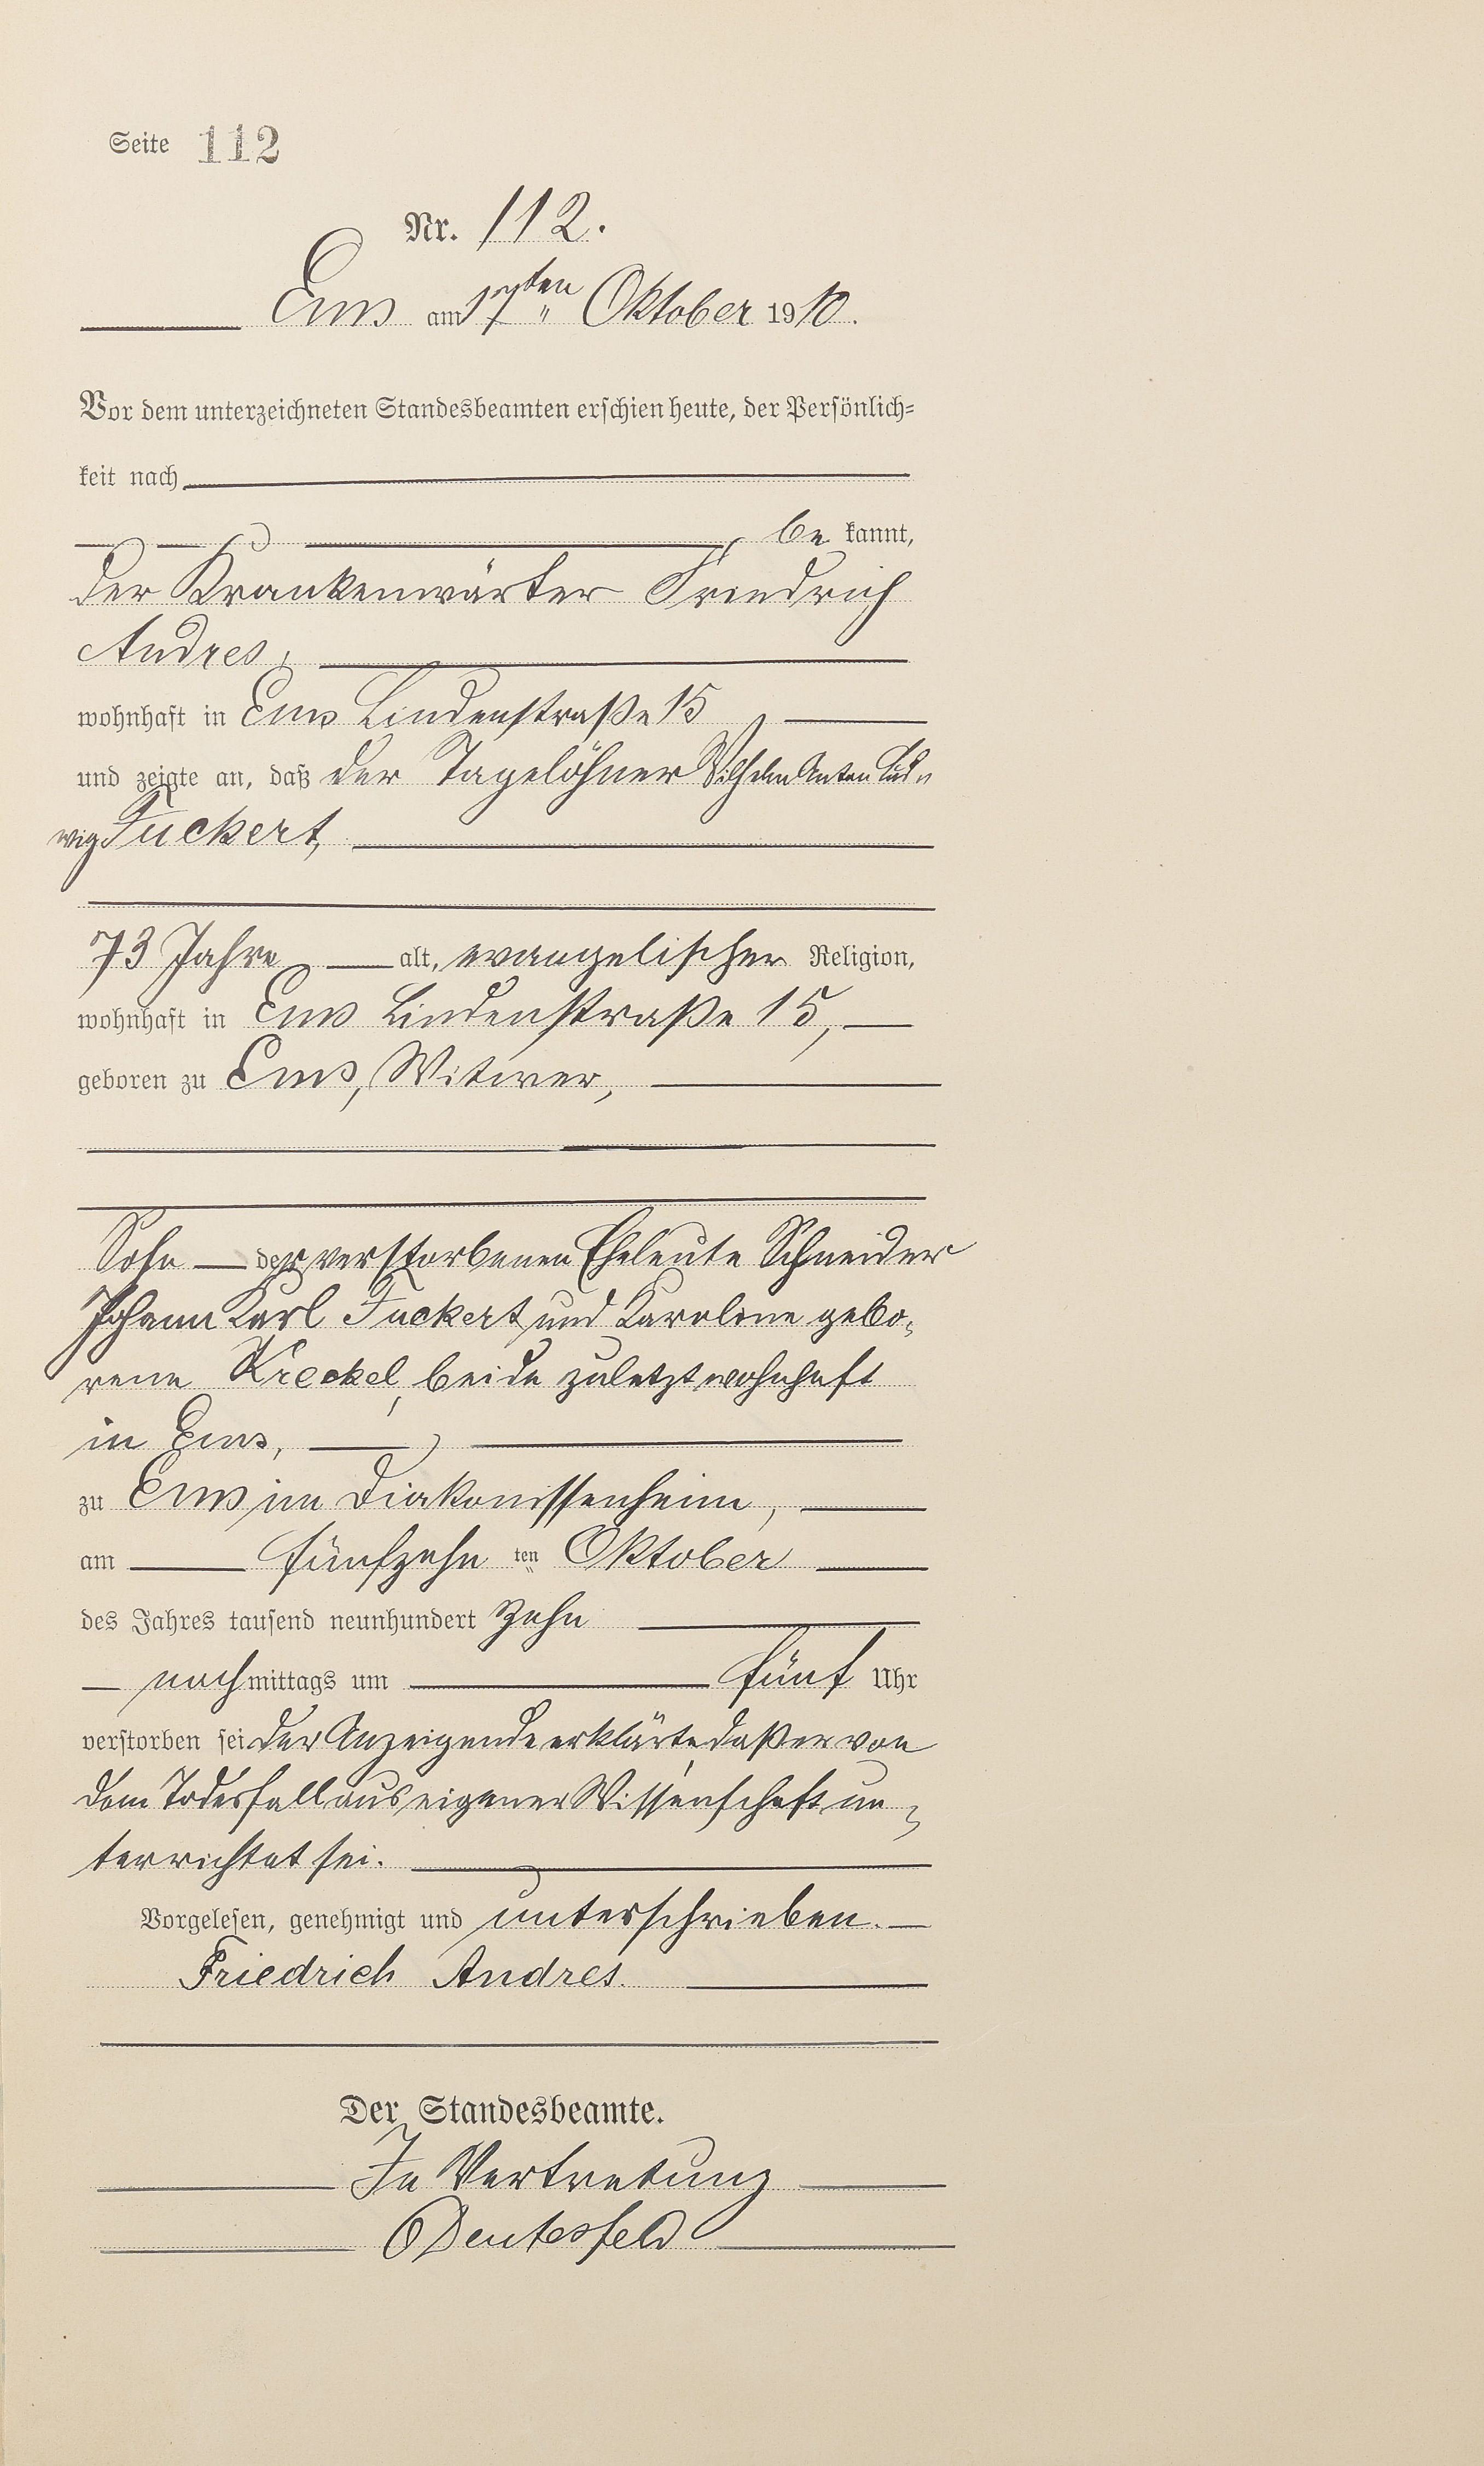 Seite 112
Nr. 112.
Ems am 17ten Oktober 1910.
Vor dem unterzeichneten Standesbeamten erschien heute, der Persönlich-
keit nach
be kannt,
der Krankenwärter Friedrich
Andres,
wohnhaft in Ems Lindenstraße 15
und zeigte an, daß der Tagelöhner Wilhelm Anton Lud-
wig Fuckert,
73 Jahre alt, evangelischer Religion,
wohnhaft in Ems Lindenstraße 15,
geboren zu Ems, Witwer,
Sohn der verstorbenen Eheleute Schneider
Johann Karl Fuckert und Karoline gebo-
rene Kreckel, beide zuletzt wohnhaft
in Ems,
zu Ems im Diakonissenheim,
am fünfzehn ten Oktober
des Jahres tausend neunhundert zehn
nachmittags um fünf Uhr
verstorben sei der Anzeigende erklärte, daß er von
dem Todesfall aus eigener Wissenschaft un-
terrichtet sei.
Vorgelesen, genehmigt und unterschrieben.
Friedrich Andres.
Der Standesbeamte.
In Vertretung
Deutesfeld